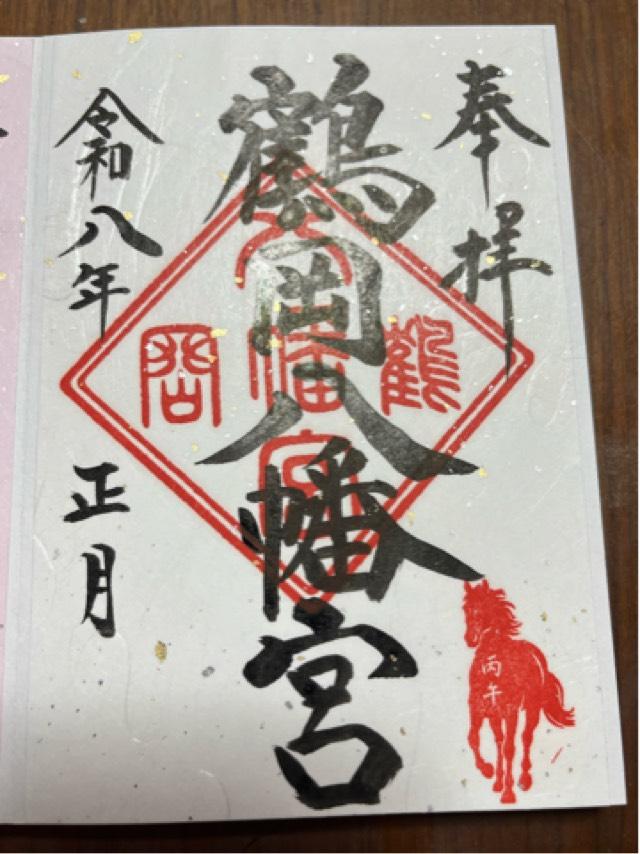 奉拝
鶴岡八幡宮
令和八年 正月
鶴 八幡宮 岡
丙午